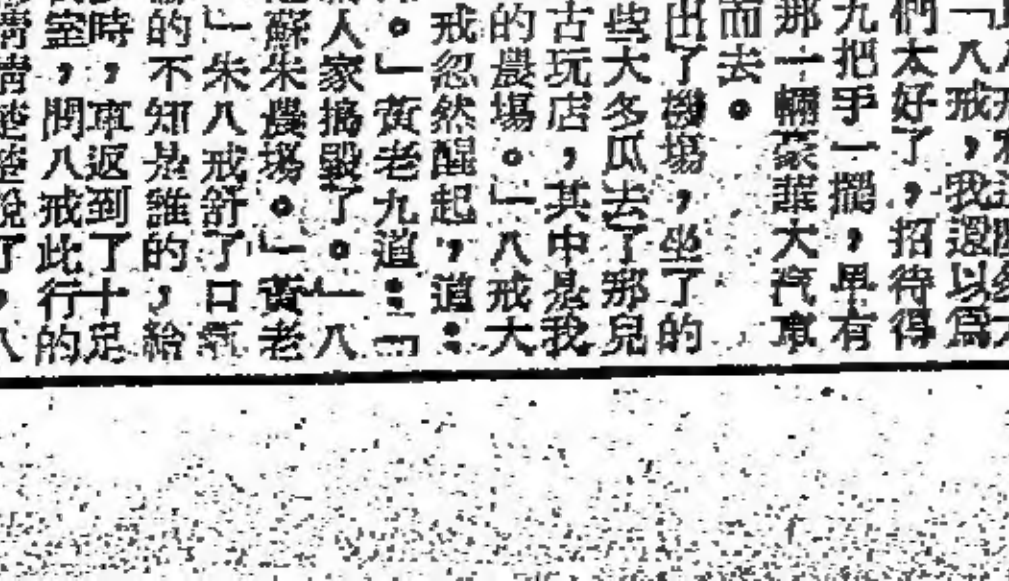 「八戒，我還以爲
們太好了，招待得
九把手一擺，早有
那一輛豪華大汽車
而去。
出了機場，坐了的
些大多瓜去了那兒
古玩店，其中是我
的農場。」八戒大
戒忽然醒起，道：
。」黃老九道：「
人家搗毀了。」八
蘇朱農場。」黃老
」朱八戒舒了口氣
的不知是誰的，給
時，車返到了十足
室，問八戒此行的
清楚說了，八